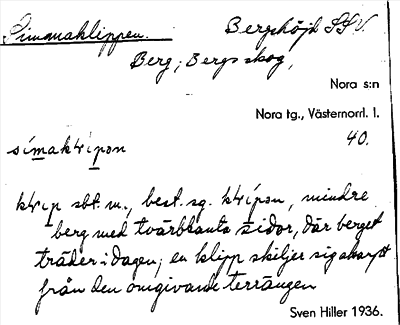 Simonaklippen. Bergshöjd SSV.
Berg; Bergs skog,
Nora s:n
Nora tg., Västernorrl. l.
40.
símakrípon
krip sbt. m., best. sg. krípon, mindre
berg med tvärbranta sidor, där berget
träder i dagen; en klipp skiljer sig skarpt
från den omgivande terrängen
Sven Hiller 1936.